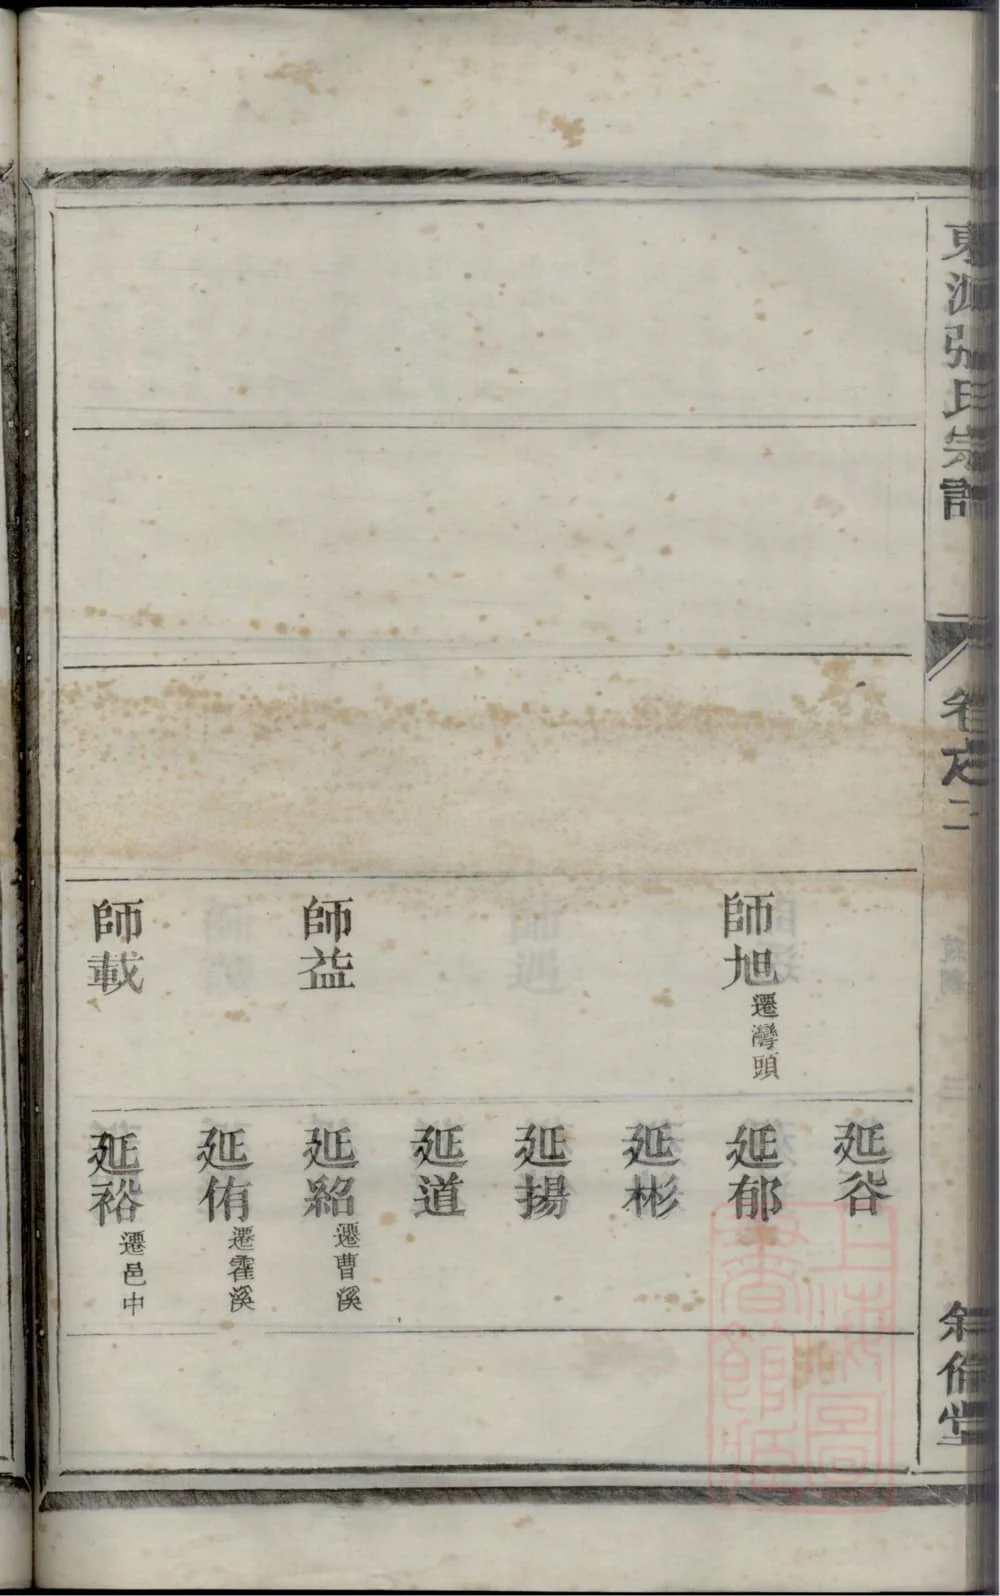 東源張氏宗譜
卷之二
敘倫堂
師旭遷灣頭
師益
師載
延谷
延郁
延彬
延揚
延道
延紹遷曹溪
延侑遷霍溪
延裕遷邑中
上海圖
書館藏